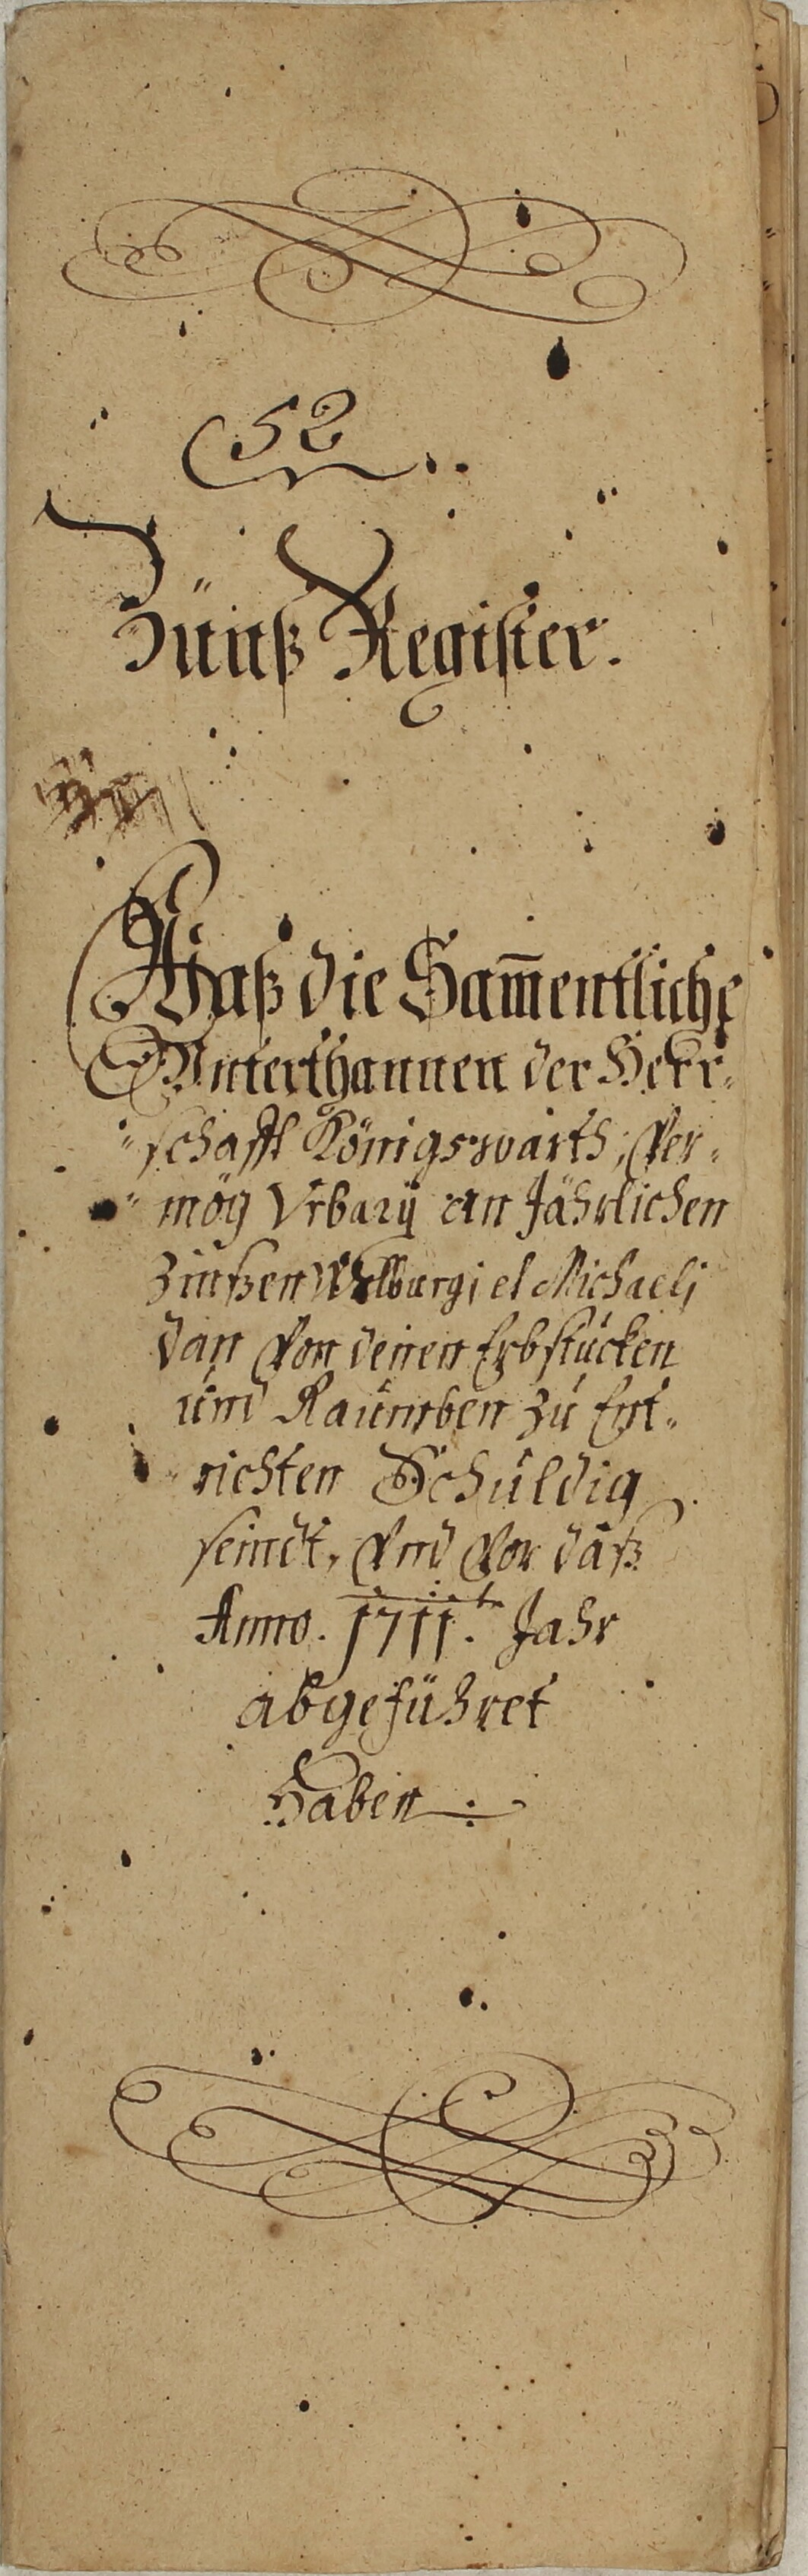 52
Zünß Register.
Waß die Sam̅entliche
Unterthannen der Herr-
schafft Königswarth, Ver-
mög Vrbarÿ an Jährlichen
Zinßen Walburgi et Michaeli
dan Von denen Erbstücken
und Raumben zu Ent-
richten Schuldig
seindt, Vnd Vor daß
Anno. 1711.t Jahr
abgeführet
Haben.